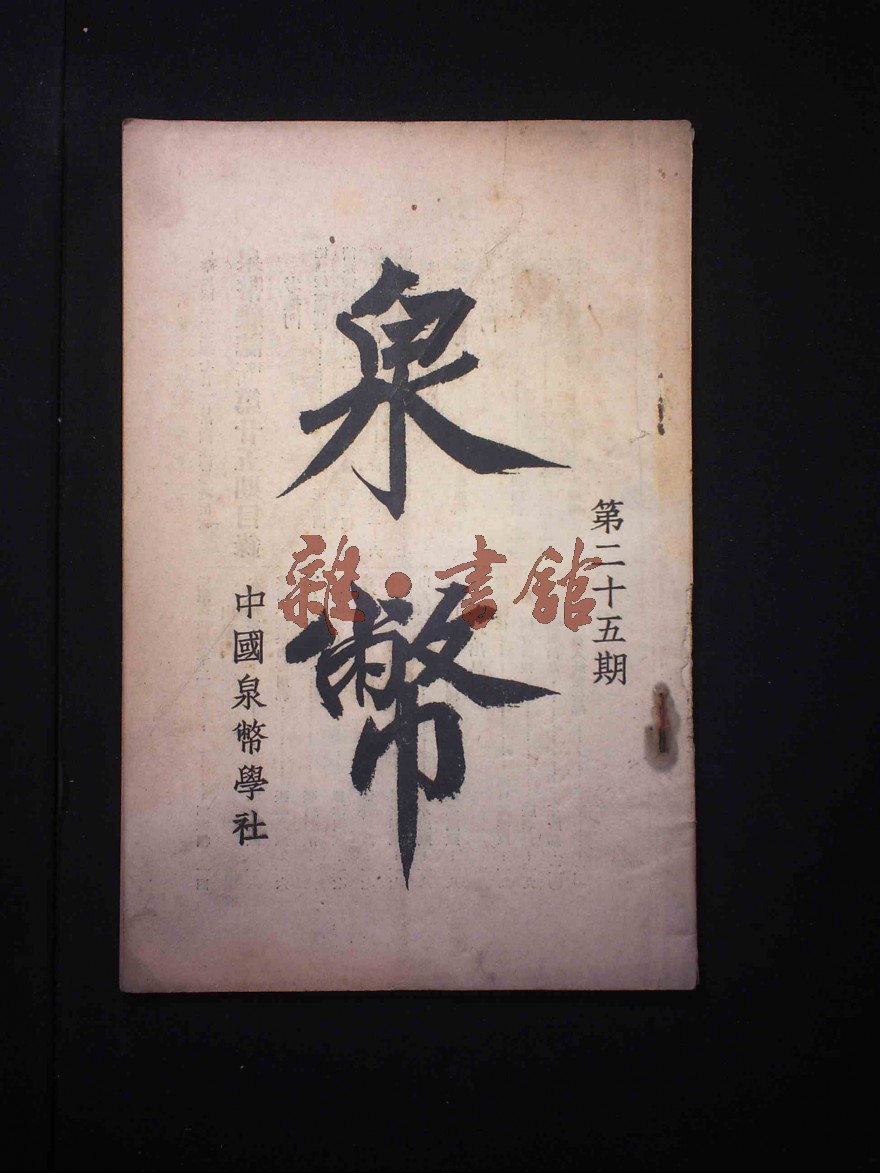 第二十五期
泉幣
中國泉幣學社
雜·書館